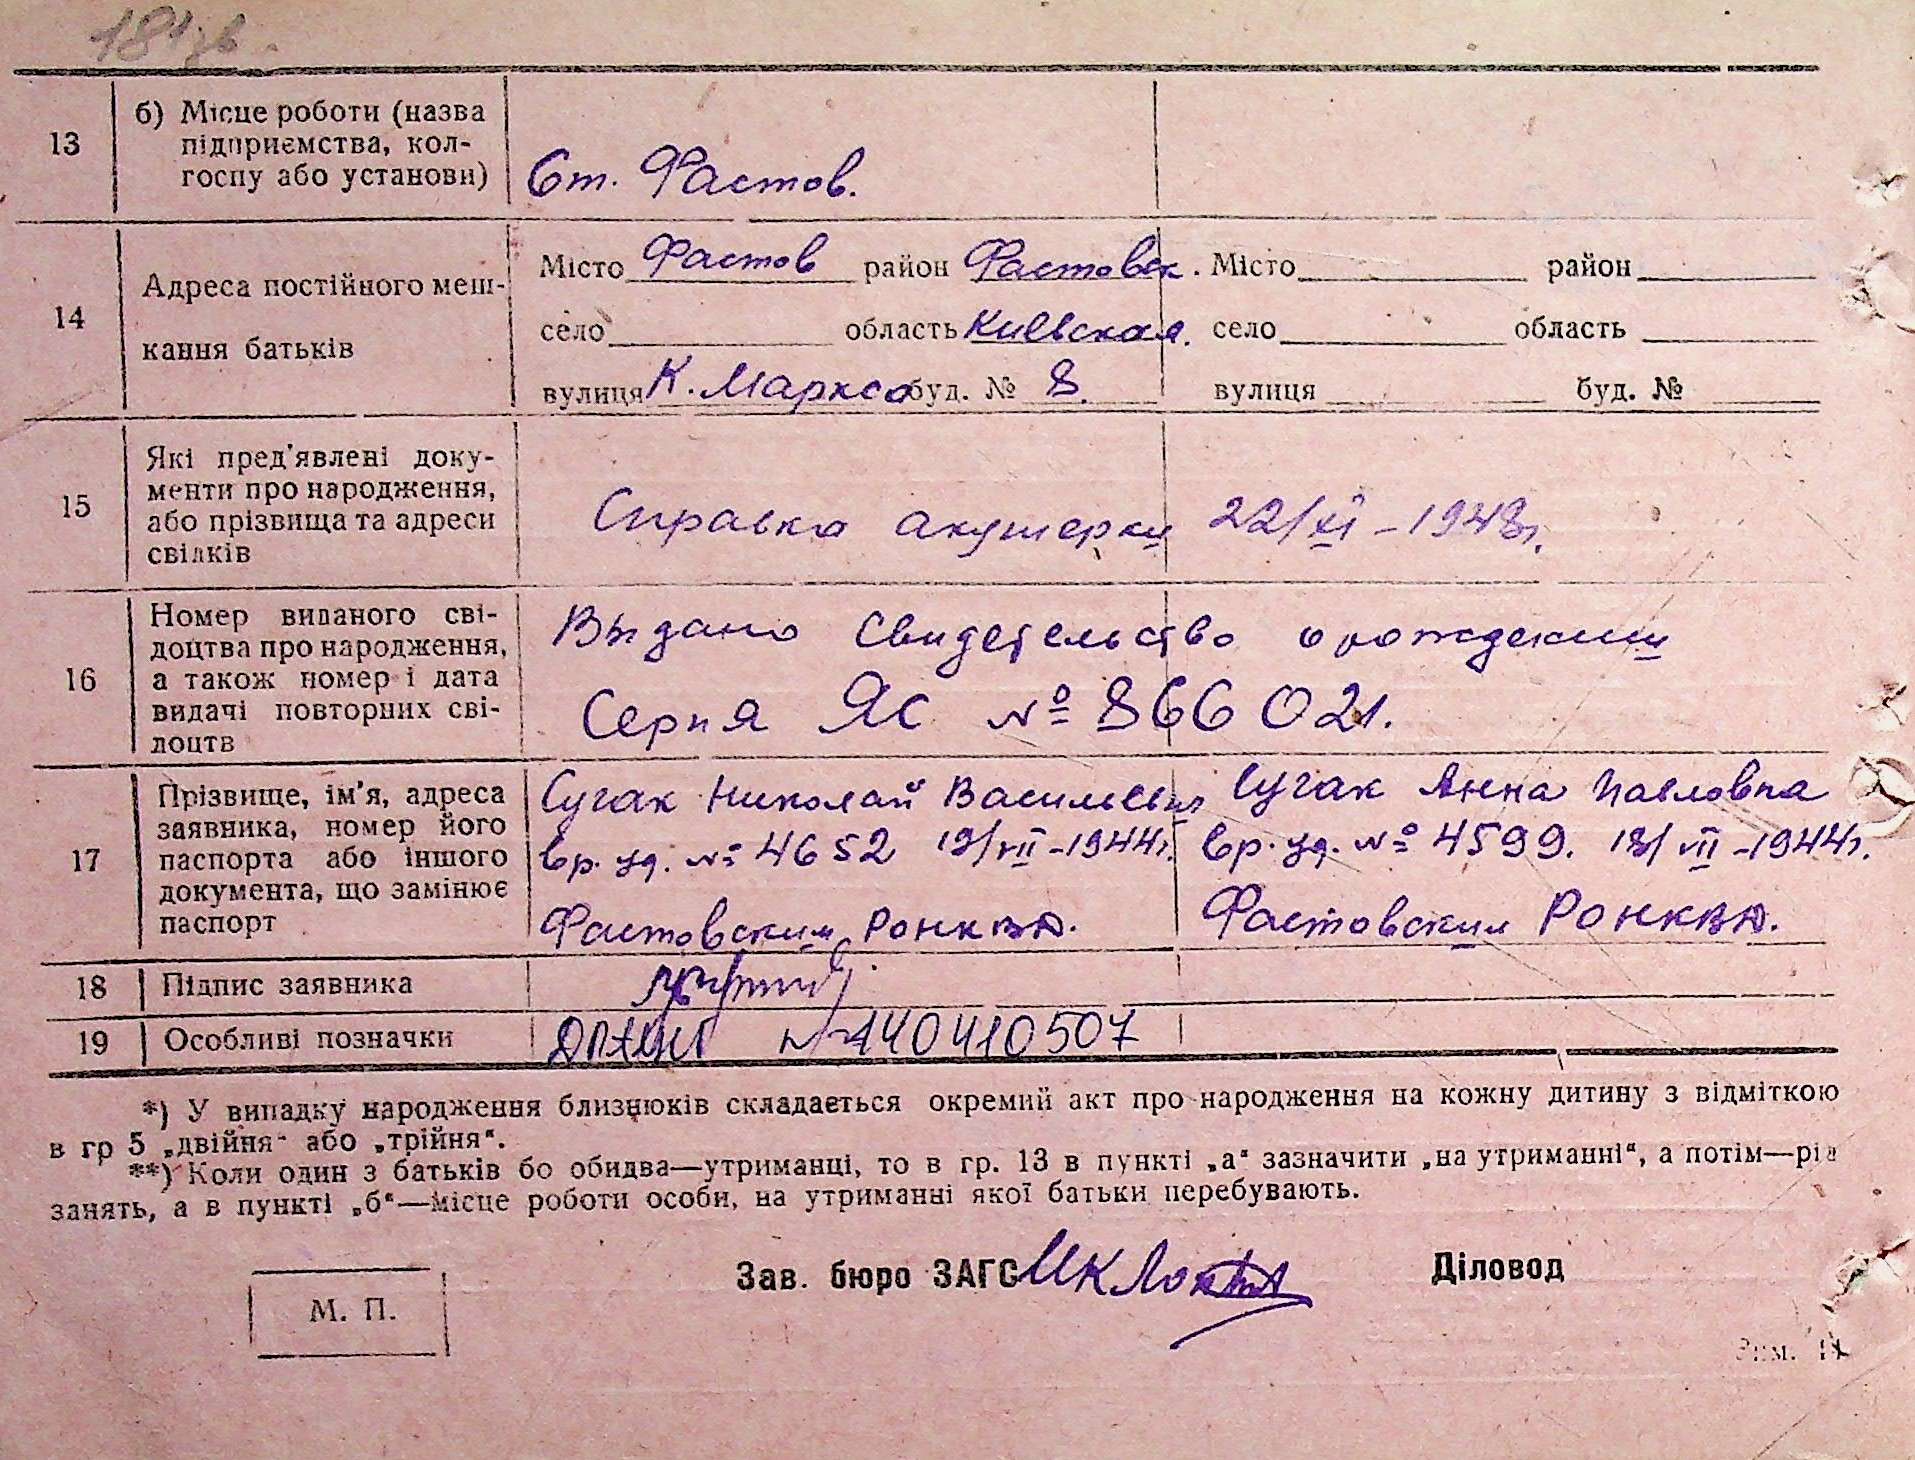 181 зв.
13
б) Місце роботи (назва
підприємства, кол-
госпу або установи)
Ст. Фастов.
14
Адреса постійного меш-
кання батьків
Місто Фастов район Фастовск. Місто район
село область Киевская. село область
вулиця К. Маркса буд. № 8. вулиця буд. №
15
Які пред'явлені доку-
менти про народження,
або прізвища та адреси
свідків
Справка акушерки 22/XI - 1948г.
16
Номер виданого сві-
доцтва про народження,
а також номер і дата
видачі повторних сві-
доцтв
Выдано свидетельство о рождении
Серия ЯС № 866021.
17
Прізвище, ім'я, адреса
заявника, номер його
паспорта або іншого
документа, що замінює
паспорт
Сугак Николай Васильевич
вр. уд. № 4652 19/VII - 1944г.
Фастовским РОНКВД.
Сугак Анна Павловна
вр. уд. № 4599. 18/VII - 1944г.
Фастовским РОНКВД.
18 Підпис заявника
19 Особливі позначки № 440410507
*) У випадку народження близнюків складається окремий акт про народження на кожну дитину з відміткою
в гр 5 „двійня“ або „трійня“.
**) Коли один з батьків бо обидва—утриманці, то в гр. 13 в пункті „а“ зазначити „на утриманні“, а потім—рід
занять, а в пункті „б“—місце роботи особи, на утриманні якої батьки перебувають.
Зав. бюро ЗАГС Діловод
М. П.